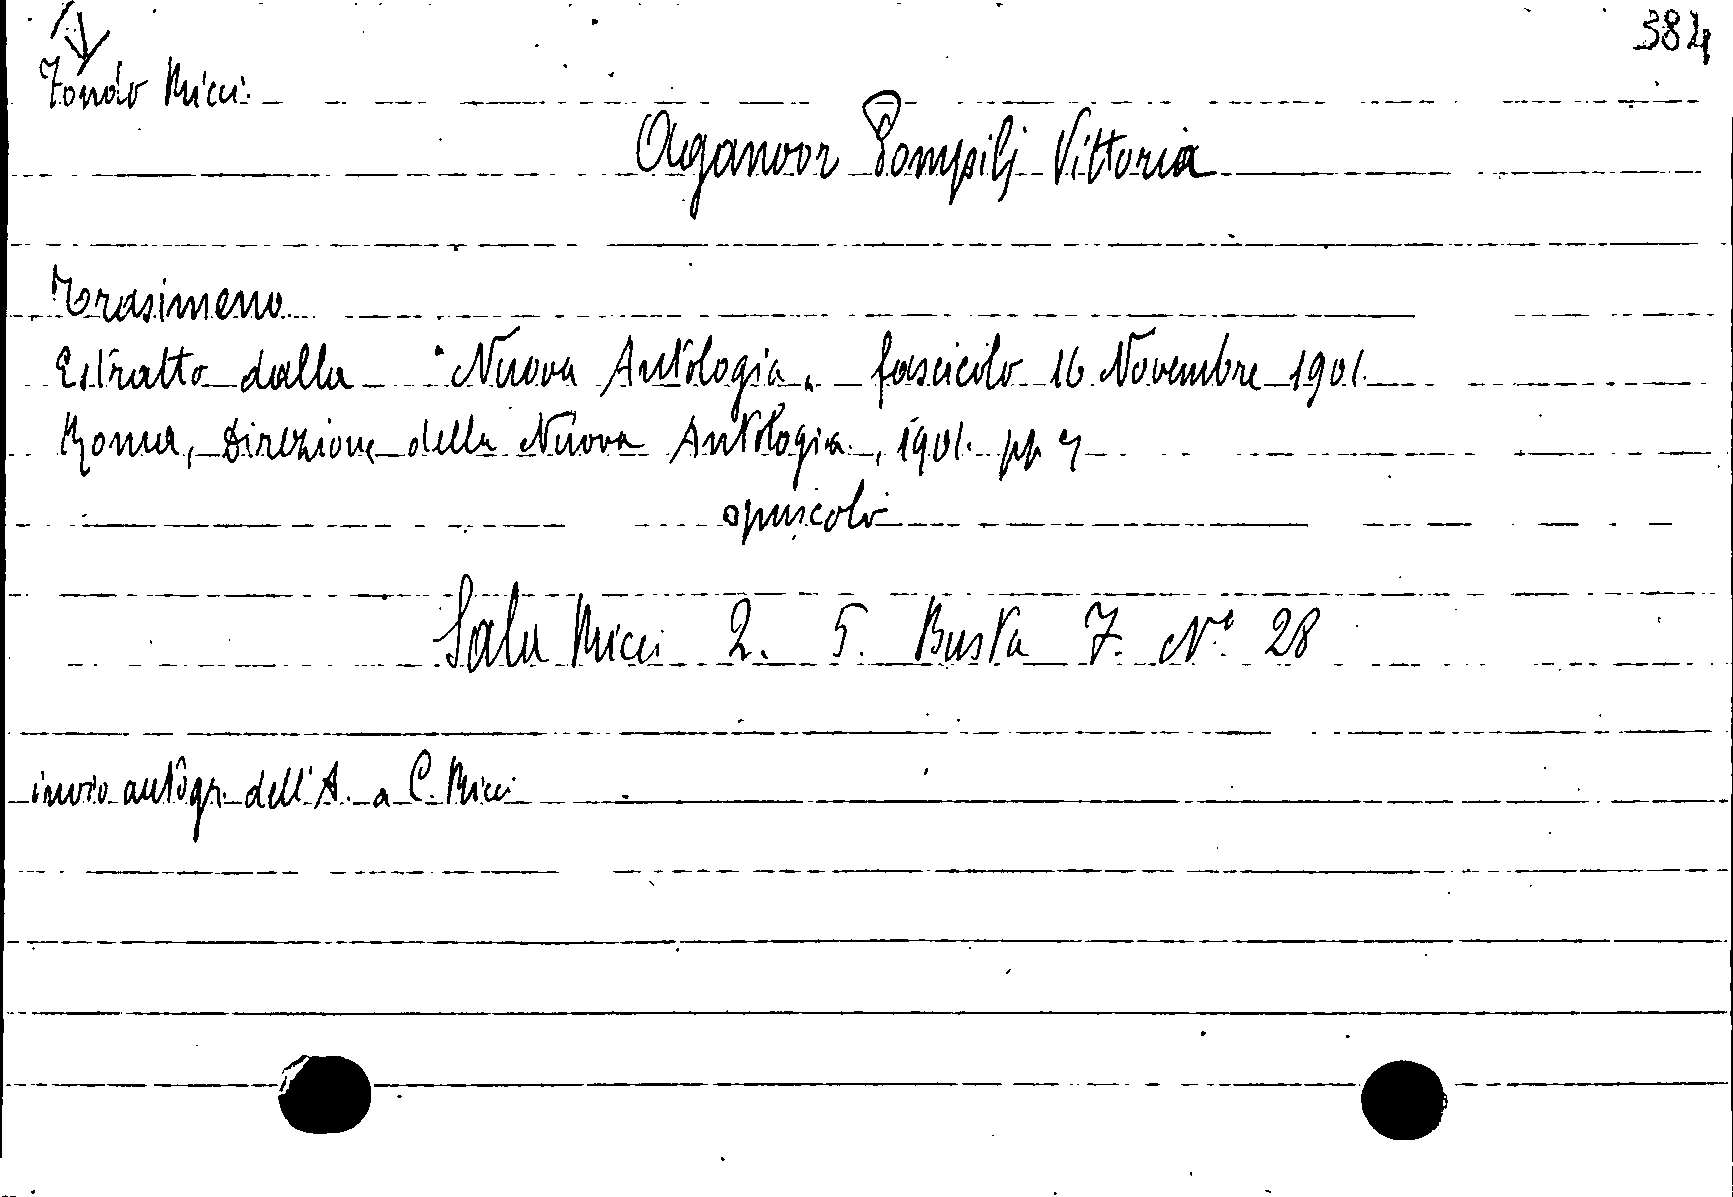 384
Fondo Ricci.
Aganoor Pompilj Vittoria
Trasimeno
Estratto dalla "Nuova Antologia" fascicolo 16 Novembre 1901.
Roma, Direzione della Nuova Antologia, 1901. pp
opuscolo
Sala Ricci 2. 5. Busta 7. N° 28
invio autogr. dell'A. a C. Ricci